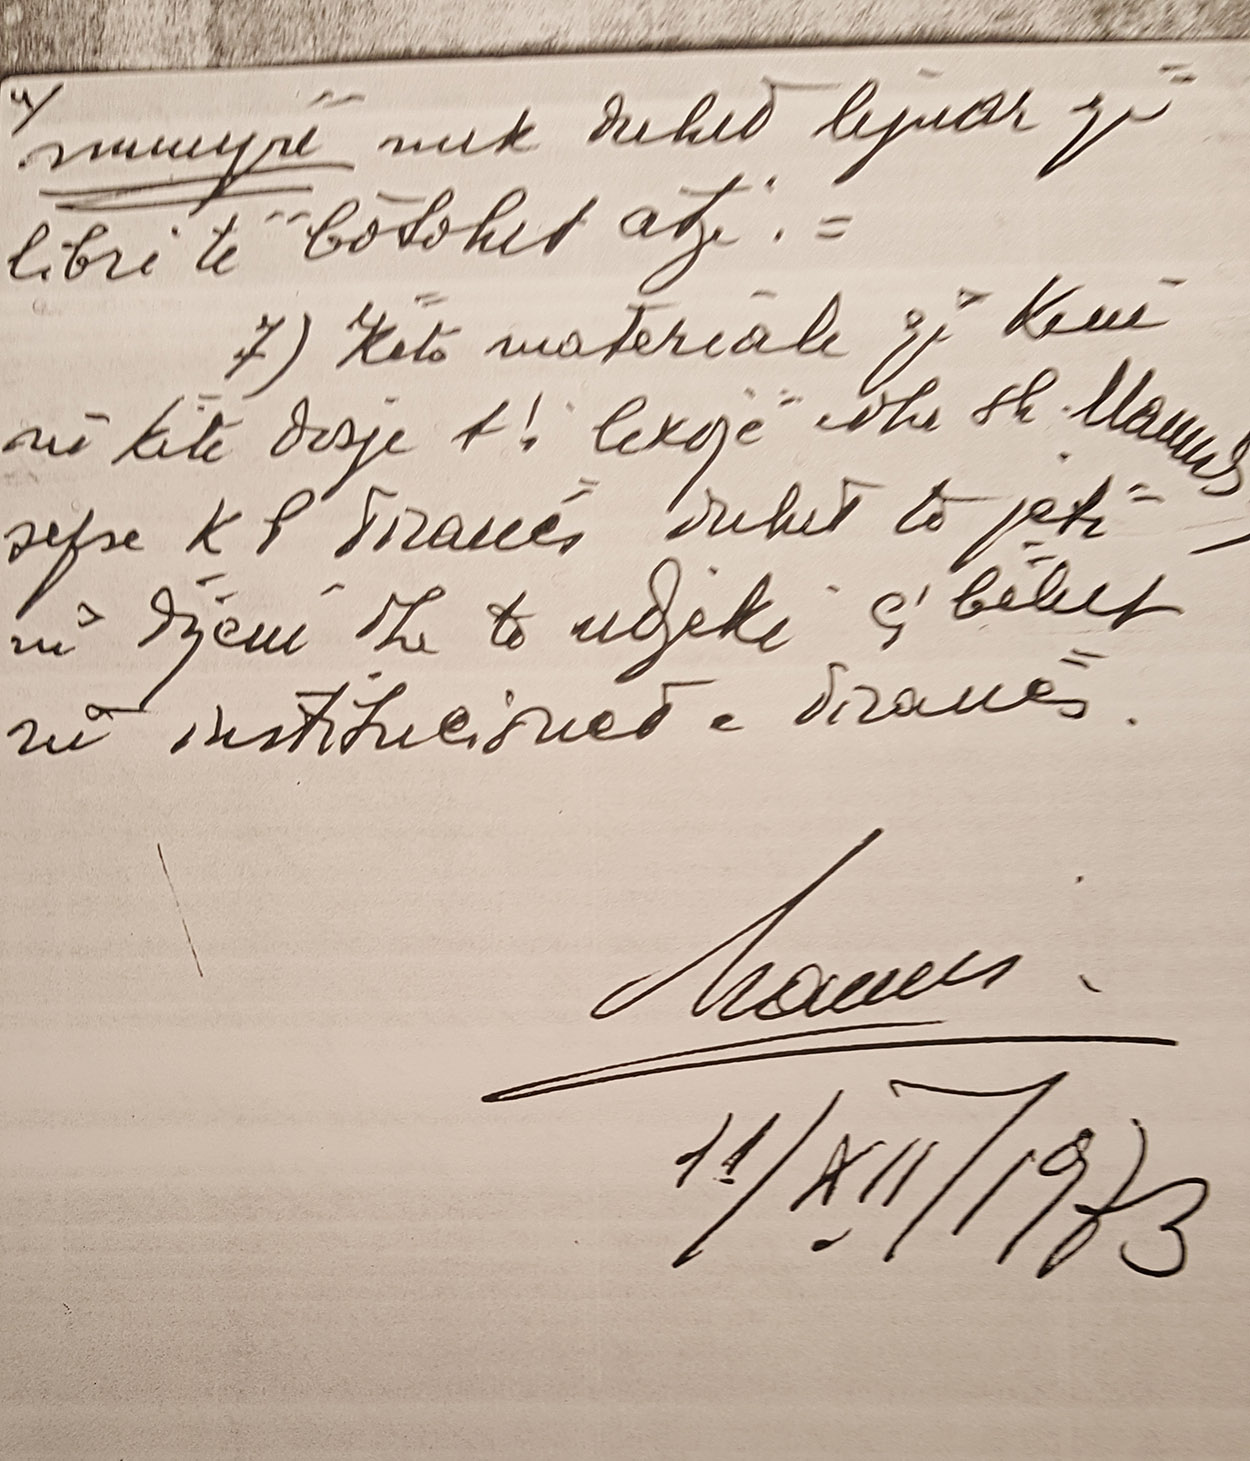 4/
mënyrë nuk duhet lejuar që
libri të botohet atje. =
7) Këto materiale që kemi
në këtë dosje t'i lexojë edhe sh. Manush
sepse K P Tiranës duhet të jetë
në dijeni dhe të ndjekë ç'bëhet
në institucionet e Tiranës.
Ramiz
11/XII/1973